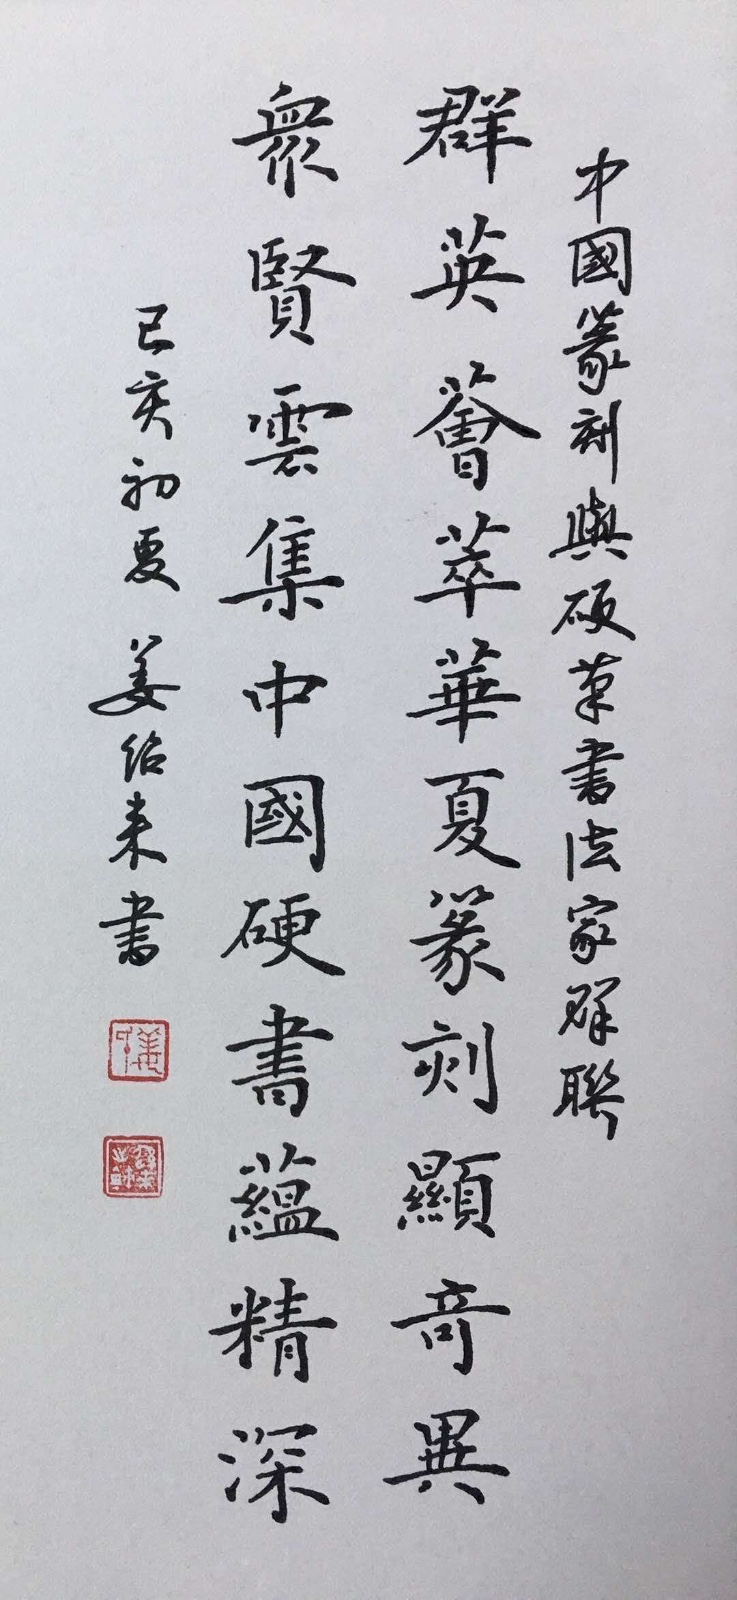 中國篆刻與硬筆書法家群聯
群英薈萃華夏篆刻顯奇異
衆賢雲集中國硬書蘊精深
己亥初夏 姜紹来書